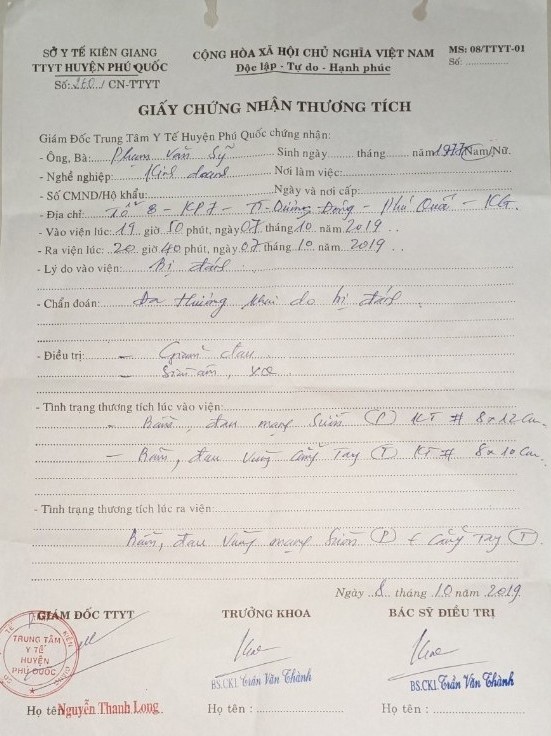 SỞ Y TẾ KIÊN GIANG
TTYT HUYỆN PHÚ QUỐC
Số: 260 / CN-TTYT
CỘNG HÒA XÃ HỘI CHỦ NGHĨA VIỆT NAM
Độc lập - Tự do - Hạnh phúc
MS: 08/TTYT-01
Số:
GIẤY CHỨNG NHẬN THƯƠNG TÍCH
Giám Đốc Trung Tâm Y Tế Huyện Phú Quốc chứng nhận:
- Ông, Bà: Phạm Văn Sỹ Sinh ngày tháng năm 1977 Nam/Nữ.
- Nghề nghiệp: Kinh doanh Nơi làm việc:
- Số CMND/Hộ khẩu: Ngày và nơi cấp:
- Địa chỉ: Tổ 8 - KP7 - TT Dương Đông - Phú Quốc - KG.
- Vào viện lúc: 19 giờ 50 phút, ngày 07 tháng 10 năm 2019
- Ra viện lúc: 20 giờ 40 phút, ngày 07 tháng 10 năm 2019.
- Lý do vào viện: Bị đánh
- Chẩn đoán: Đa thương khai do bị đánh
- Điều trị: - Giảm đau
- Siêu âm, XQ
- Tình trạng thương tích lúc vào viện:
- Bầm, đau mạng sườn (P) KT # 8 x 12 cm.
- Bầm, đau vùng cẳng tay (T) KT # 8 x 10 cm.
- Tình trạng thương tích lúc ra viện:
Bầm, đau vùng mạng sườn (P) + cẳng tay (T).
Ngày 8 tháng 10 năm 2019
GIÁM ĐỐC TTYT
TRƯỞNG KHOA
BÁC SỸ ĐIỀU TRỊ
TRUNG TÂM
Y TẾ
HUYỆN
PHÚ QUỐC
BS.CKI. Trần Văn Thành
BS.CKI. Trần Văn Thành
Họ tên Nguyễn Thanh Long
Họ tên :
Họ tên :